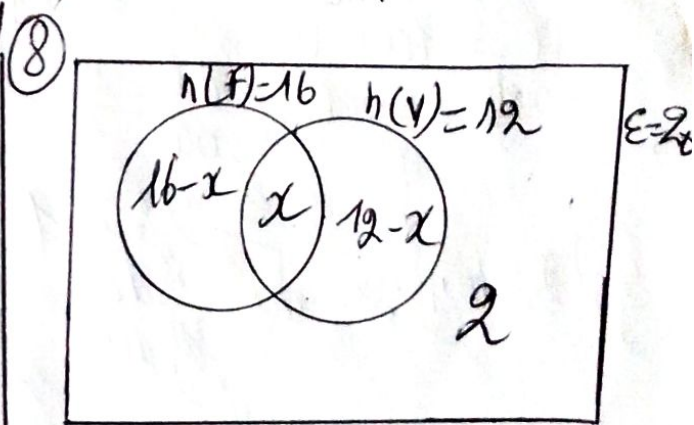 8
n(F)=16
n(V)=12
16-x
x
12-x
2